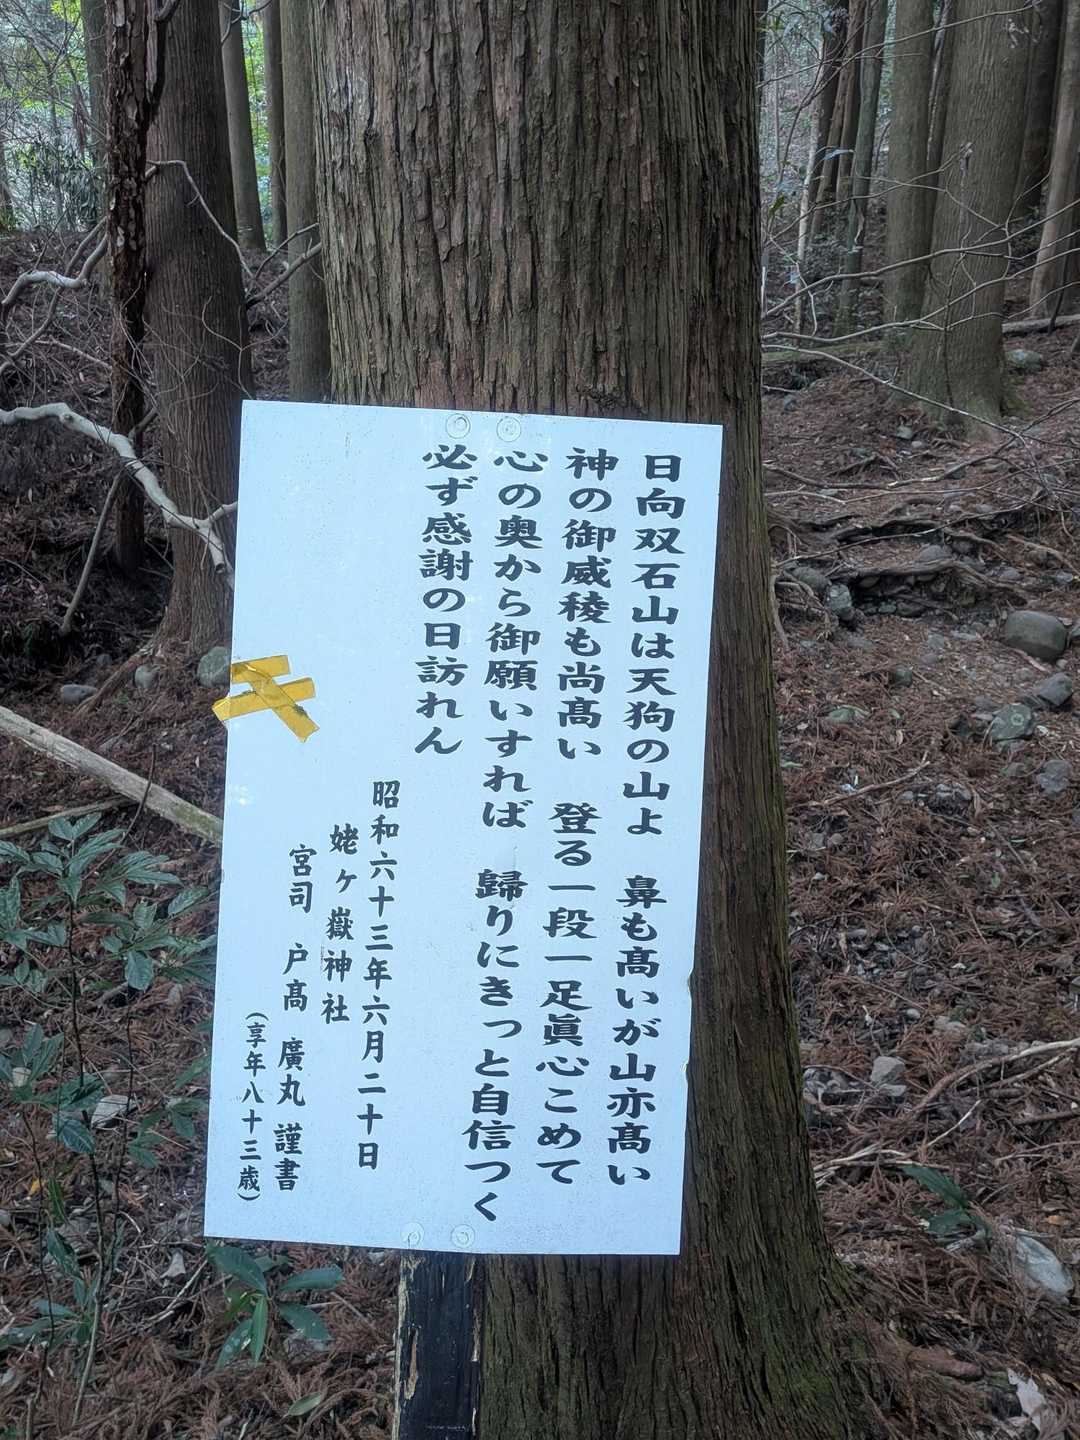 日向双石山は天狗の山よ　鼻も髙いが山亦髙い
神の御威稜も尚髙い　登る一段一足眞心こめて
心の奥から御願いすれば　歸りにきっと自信つく
必ず感謝の日訪れん
昭和六十三年六月二十日
姥ヶ嶽神社
宮司　戸髙　廣丸　謹書
（享年八十三歳）